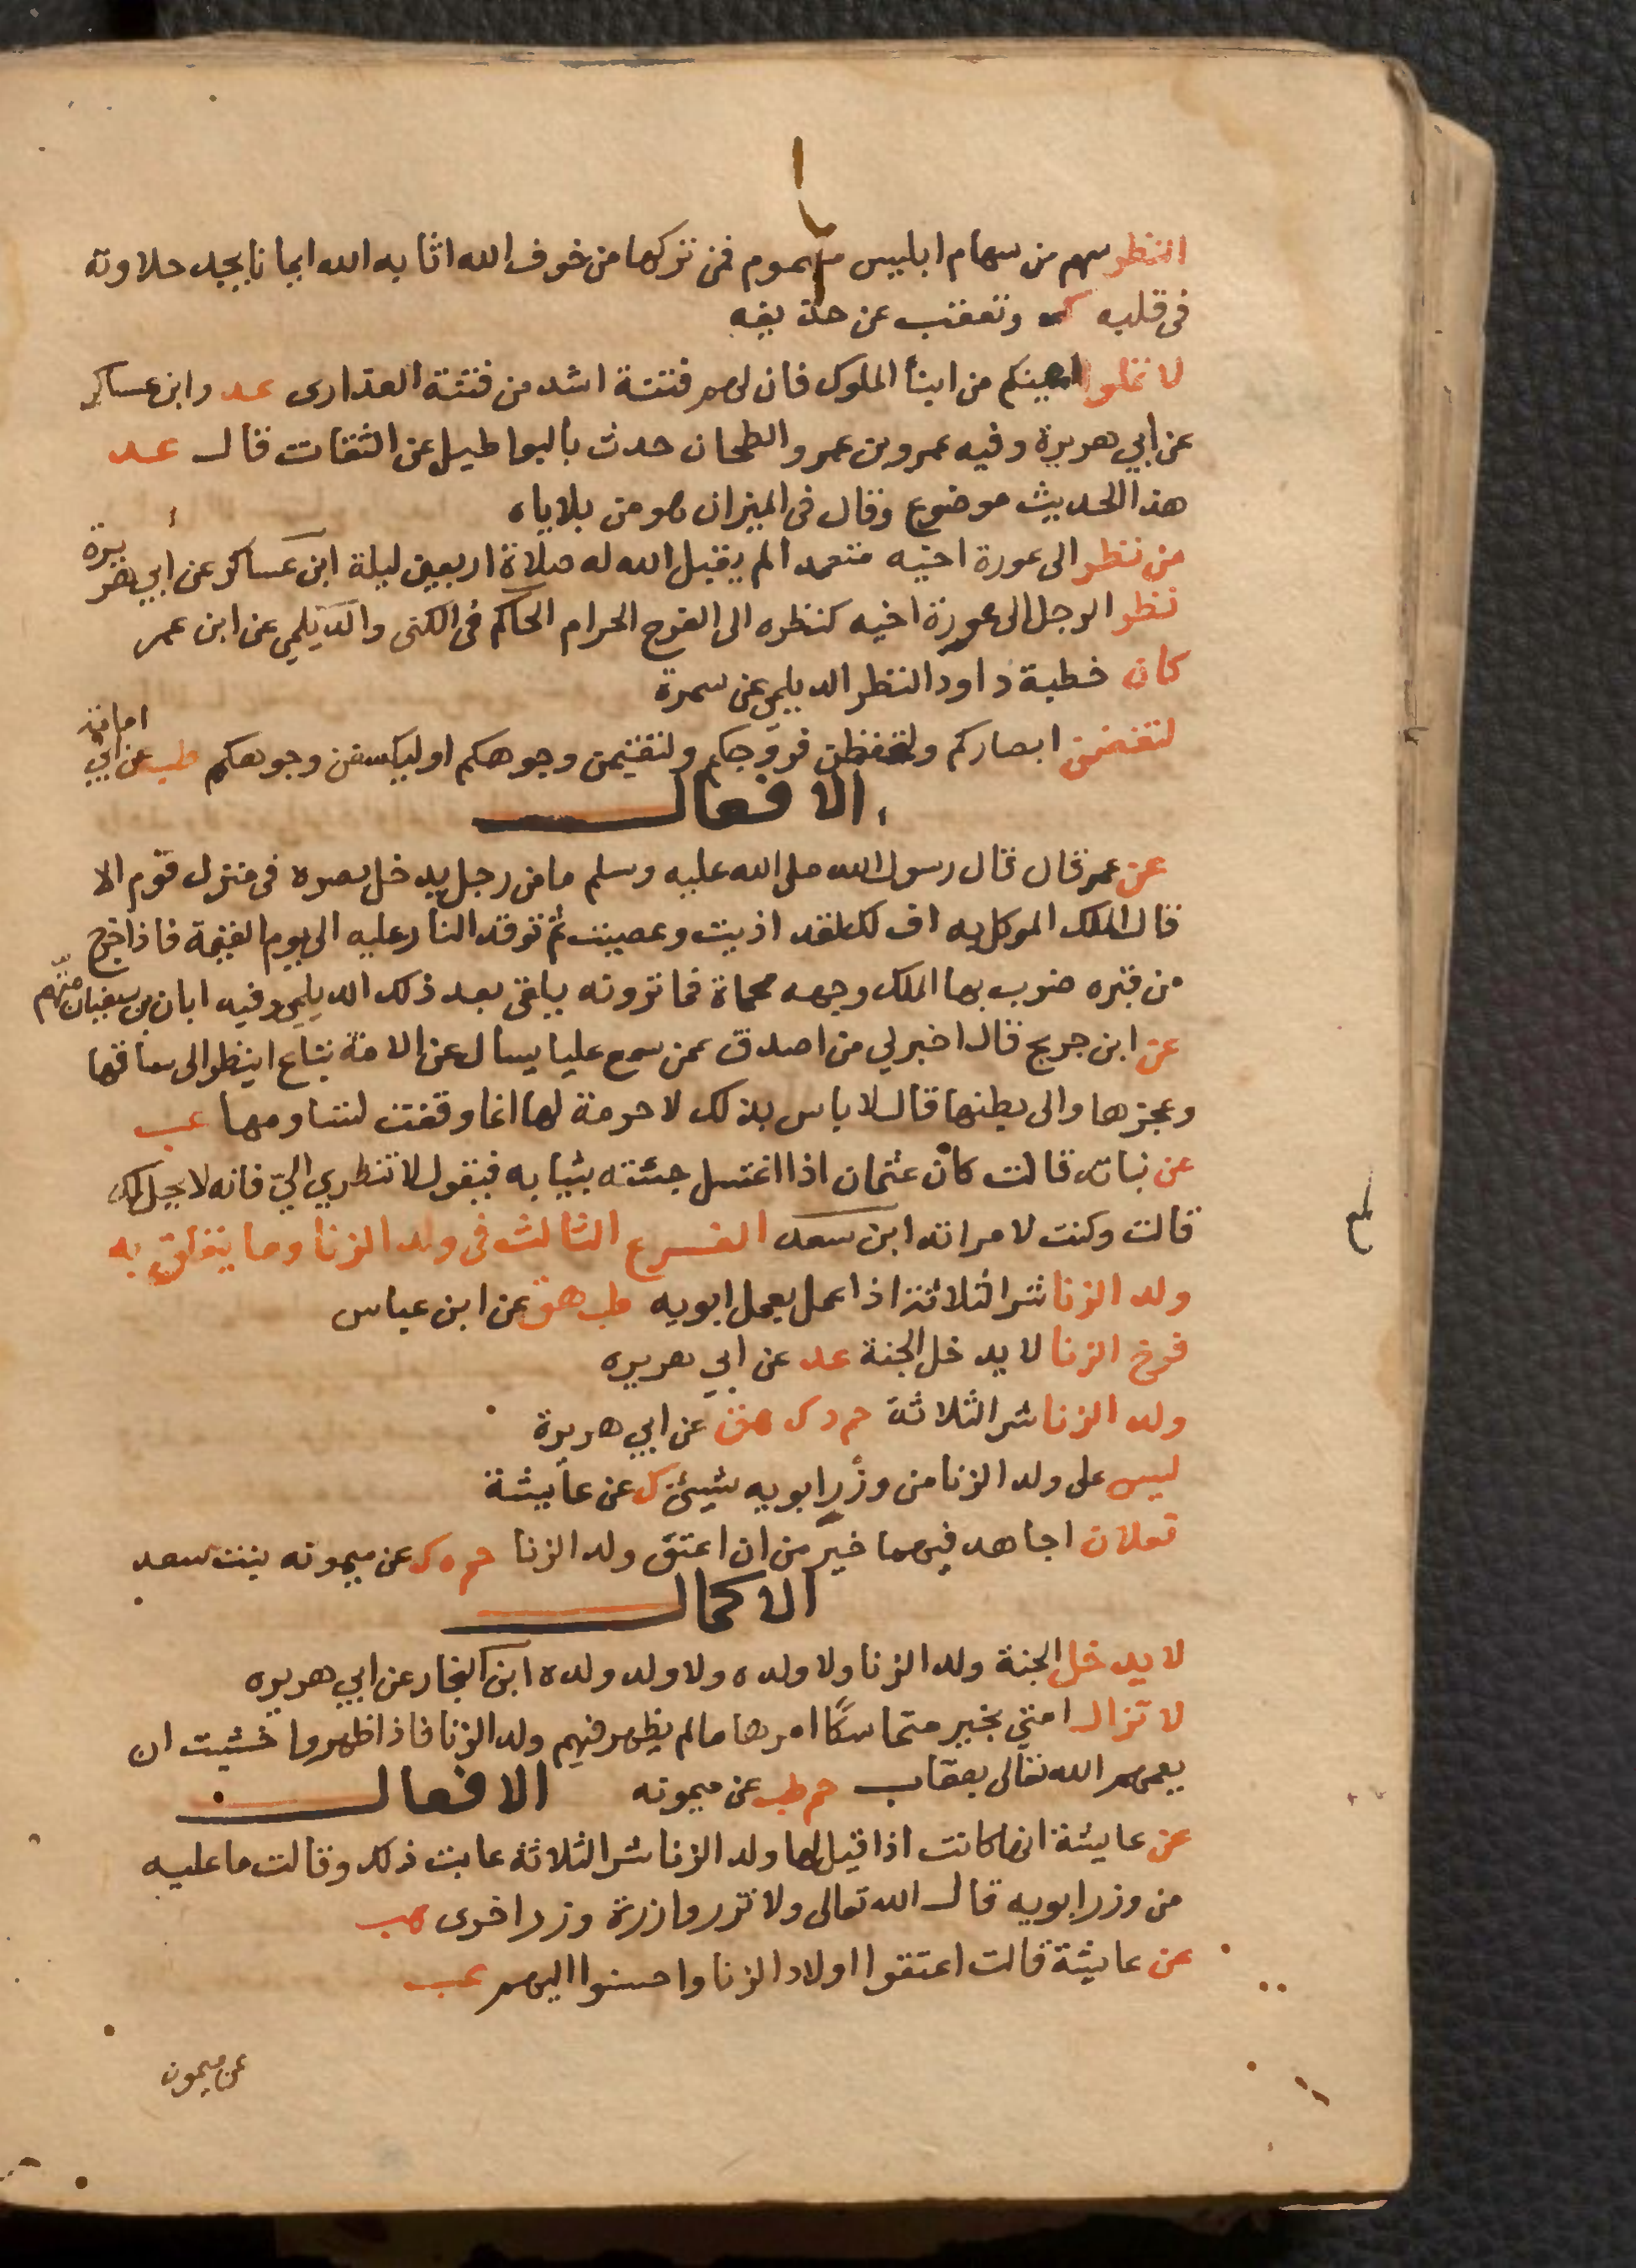 النظر سهم من سهام ابليس مسموم فمن تركها من خوف الله اثابه الله ايمانا يجد حلاوته
فى قلبه ك وتعقب عن حذيفه
لا تملوا اعينكم من ابنأ الملوك فان لهم فتنة اشد من فتنة العذارى عد وابن عساكر
عن ابي هريرة وفيه عمرو بن عمرو الطحان حدث بالبواطيل عن الثقات قال عد
هذا الحديث موضوع وقال فى الميزان هو من بلاياه
من نظر الى عورة اخيه متعمدا لم يقبل الله له صلاة اربعين ليلة ابن عساكر عن أبي هريرة
نظر الرجل الى عورة اخيه كنظره الى الفرج الحرام الحاكم فى الكنى والديلمي عن ابن عمر
كان خطية داود النظر الديلمي عن سمرة
لتغضن ابصاركم ولتحفظن فروجكم ولتقيمن وجوهكم او ليكسفن وجوهكم طب عن ابي امامة
الافعال
عن عمر قال قال رسول الله صلى الله عليه وسلم ما من رجل يدخل بصره فى منزل قوم الا
قال الملك الموكل به اف لك لقد اذيت وعصيت ثم توقد النار عليه الى يوم القيمة فاذا خرج
من قبره ضرب بها الملك وجهه محماة فما ترونه يلقى بعد ذلك الديلمي وفيه ابان بن سفيان متهم
عن ابن جريج قال اخبرلي من اصدق عمن سمع عليا يسال عن الامة تباع اينظر الى ساقها
وعجزها والى بطنها قال لا باس بذلك لا حرمة لها انما وقفت لنساومها عب
عن نباته قالت كان عثمان اذا اغتسل جئته بثيابه فيقول لا تنظري اليّ فانه لا يحل لك
قالت وكنت لامراته ابن سعد الفرع الثالث فى ولد الزنا وما يتعلق به
ولد الزنا شر الثلاثة اذا عمل بعمل ابويه طب هق عن ابن عباس
فرخ الزنا لا يدخل الجنة عد عن ابي هريره
ولد الزنا شر الثلاثة حم د ك هق عن ابي هريرة
ليس على ولد الزنا من وزر ابويه شيئ ك عن عايشة
نعلان اجاهد فيهما خير من ان اعتق ولد الزنا حم ه ك عن ميمونه بنت سعد
الاكمال
لا يدخل الجنة ولد الزنا ولا ولده ولا ولد ولده ابن النجار عن ابي هريره
لا تزال امتي بخير متماسكا امرها ما لم يظهر فيهم ولد الزنا فاذا ظهروا خشيت ان
يعمهم الله تعالى بعقاب حم طب عن ميمونه الافعال
عن عايشة انها كانت اذا قيل لها ولد الزنا شر الثلاثة عابت ذلك وقالت ما عليه
من وزر ابويه قال الله تعالى ولا تزر وازرة وزر اخرى عب
عن عايشة قالت اعتقوا اولاد الزنا واحسنوا اليهم عب
عن ميمون